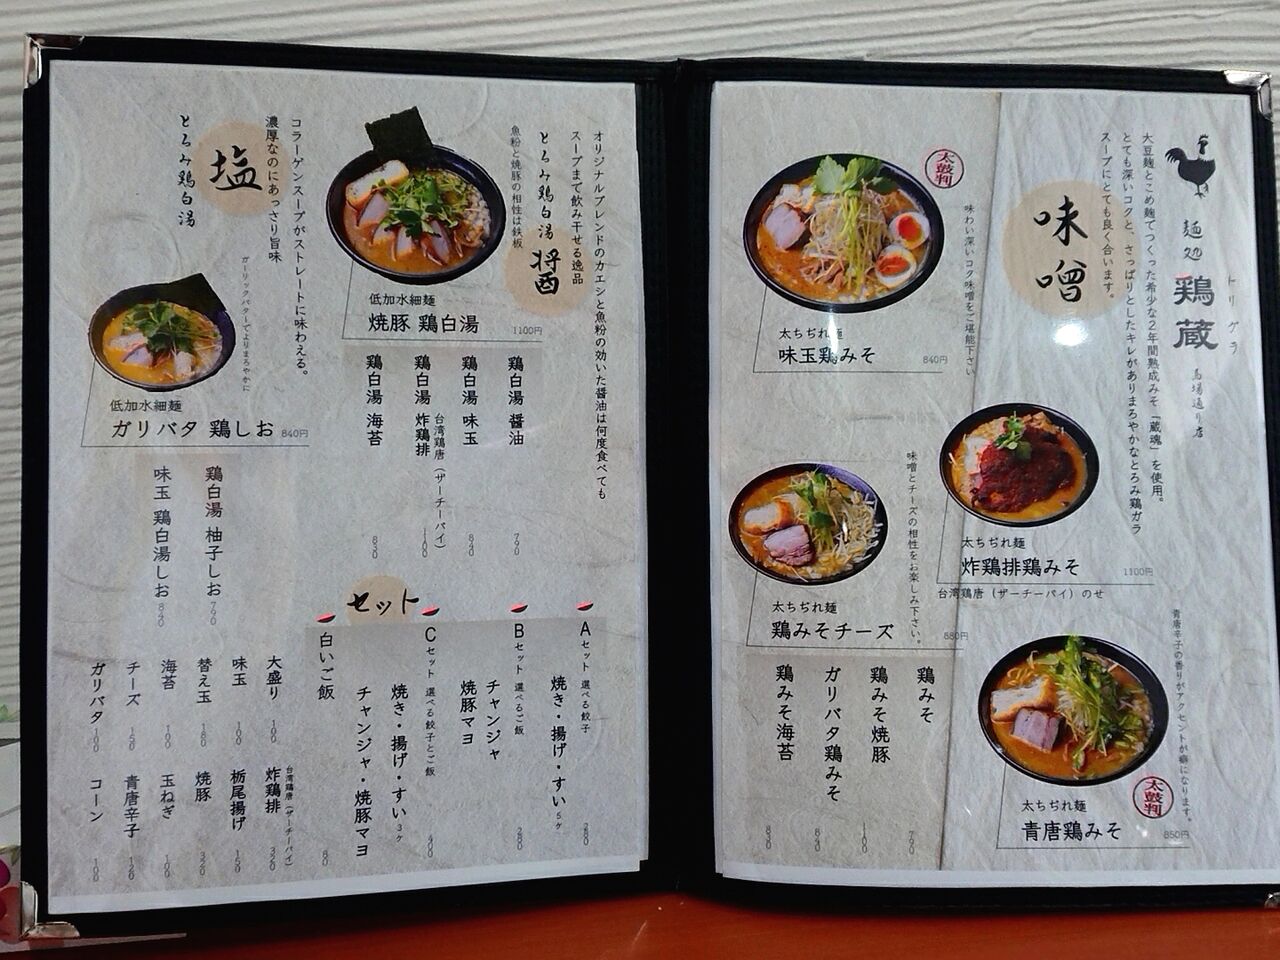 トリゲラ
麺処 鶏蔵 馬場通り店
大豆麹とこめ麹でつくった希少な2年間熟成みそ「蔵魂」を使用。
とても深いコクと、さっぱりとしたキレがありまろやかなとろみ鶏ガラ
スープにとても良く合います。
味噌
太鼓判
味わい深いコク味噌をご堪能下さい
太ちぢれ麺
味玉鶏みそ 840円
太ちぢれ麺
炸鶏排鶏みそ 1100円
台湾鶏唐(ザーチーパイ)のせ
味噌とチーズの相性をお楽しみ下さい。
太ちぢれ麺
鶏みそチーズ 880円
青唐辛子の香りがアクセントが癖になります。
太鼓判
太ちぢれ麺
青唐鶏みそ 850円
鶏みそ 790
鶏みそ焼豚 1100
ガリバタ鶏みそ 840
鶏みそ海苔 830
オリジナルブレンドのカエシと魚粉の効いた醤油は何度食べても
スープまで飲み干せる逸品
とろみ鶏白湯 醤
魚粉と焼豚の相性は鉄板
低加水細麺
焼豚 鶏白湯 1100円
鶏白湯 醤油 790
鶏白湯 味玉 840
台湾鶏唐(ザーチーパイ)
鶏白湯 炸鶏排 1100
鶏白湯 海苔 830
コラーゲンスープがストレートに味わえる。
濃厚なのにあっさり旨味
塩
とろみ鶏白湯
ガーリックバターでよりまろやかに
低加水細麺
ガリバタ 鶏しお 840円
鶏白湯 柚子しお 790
味玉 鶏白湯しお 840
セット
Aセット 選べる餃子
焼き・揚げ・すい 5ヶ 280
Bセット 選べるご飯
チャンジャ
焼豚マヨ 280
Cセット 選べる餃子とご飯
焼き・揚げ・すい 3ヶ
チャンジャ・焼豚マヨ 400
白いご飯 80
大盛り 100
味玉 100
替え玉 180
海苔 100
チーズ 150
ガリバタ 100
台湾鶏唐(ザーチーパイ)
炸鶏排 320
栃尾揚げ 150
焼豚 320
玉ねぎ 100
青唐辛子 120
コーン 100